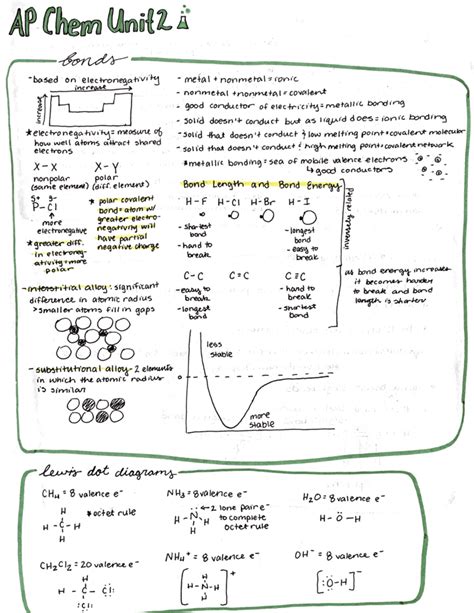 AP Chem Unit 2
bonds
-based on electronegativity
increase
increase
*electronegativity= measure of
how well atoms attract shared
electrons
X-X X-Y
nonpolar polar
(same element) (diff. element)
δ+ δ-
P-Cl
↑
more
electronegative
* polar covalent
bond= atom w/
greater electro-
negativity will
have partial
negative charge
*greater diff.
in electroneg-
ativity=more
polar
-interstitial alloy: significant
difference in atomic radius
>smaller atoms fill in gaps
-substitutional alloy- 2 elements
in which the atomic radius
is similar
- metal + nonmetal=ionic
- nonmetal +nonmetal=covalent
- good conductor of electricity=metallic bonding
-solid doesn't conduct but as liquid does=ionic bonding
-solid that doesn't conduct & low melting point=covalent molecular
-solid that doesn't conduct & high melting point=covalent network
*metallic bonding=sea of mobile valence electrons
↳good conductors
Bond Length and Bond Energy
H-F H-Cl H-Br H-I
-shortest
bond
-hard to
break
-longest
bond
-easy to
break
inversely related
C-C C=C C≡C
-easy to
break
-longest
bond
-hard to
break
-shortest
bond
as bond energy increases
it becomes harder
to break and bond
length is shorter
less
stable
0
more
stable
lewis dot diagrams
CH4 = 8 valence e⁻
*octet rule
H
H-C-H
H
NH3 = 8 valence e⁻
←2 lone pair e⁻
to complete
octet rule
H-N-H
H
H2O = 8 valence e⁻
H-O-H
CH2Cl2 = 20 valence e⁻
H
H-C-Cl:
:Cl:
NH4⁺ = 8 valence e⁻
H
[H-N-H]⁺
H
OH⁻ = 8 valence e⁻
[:O-H]⁻